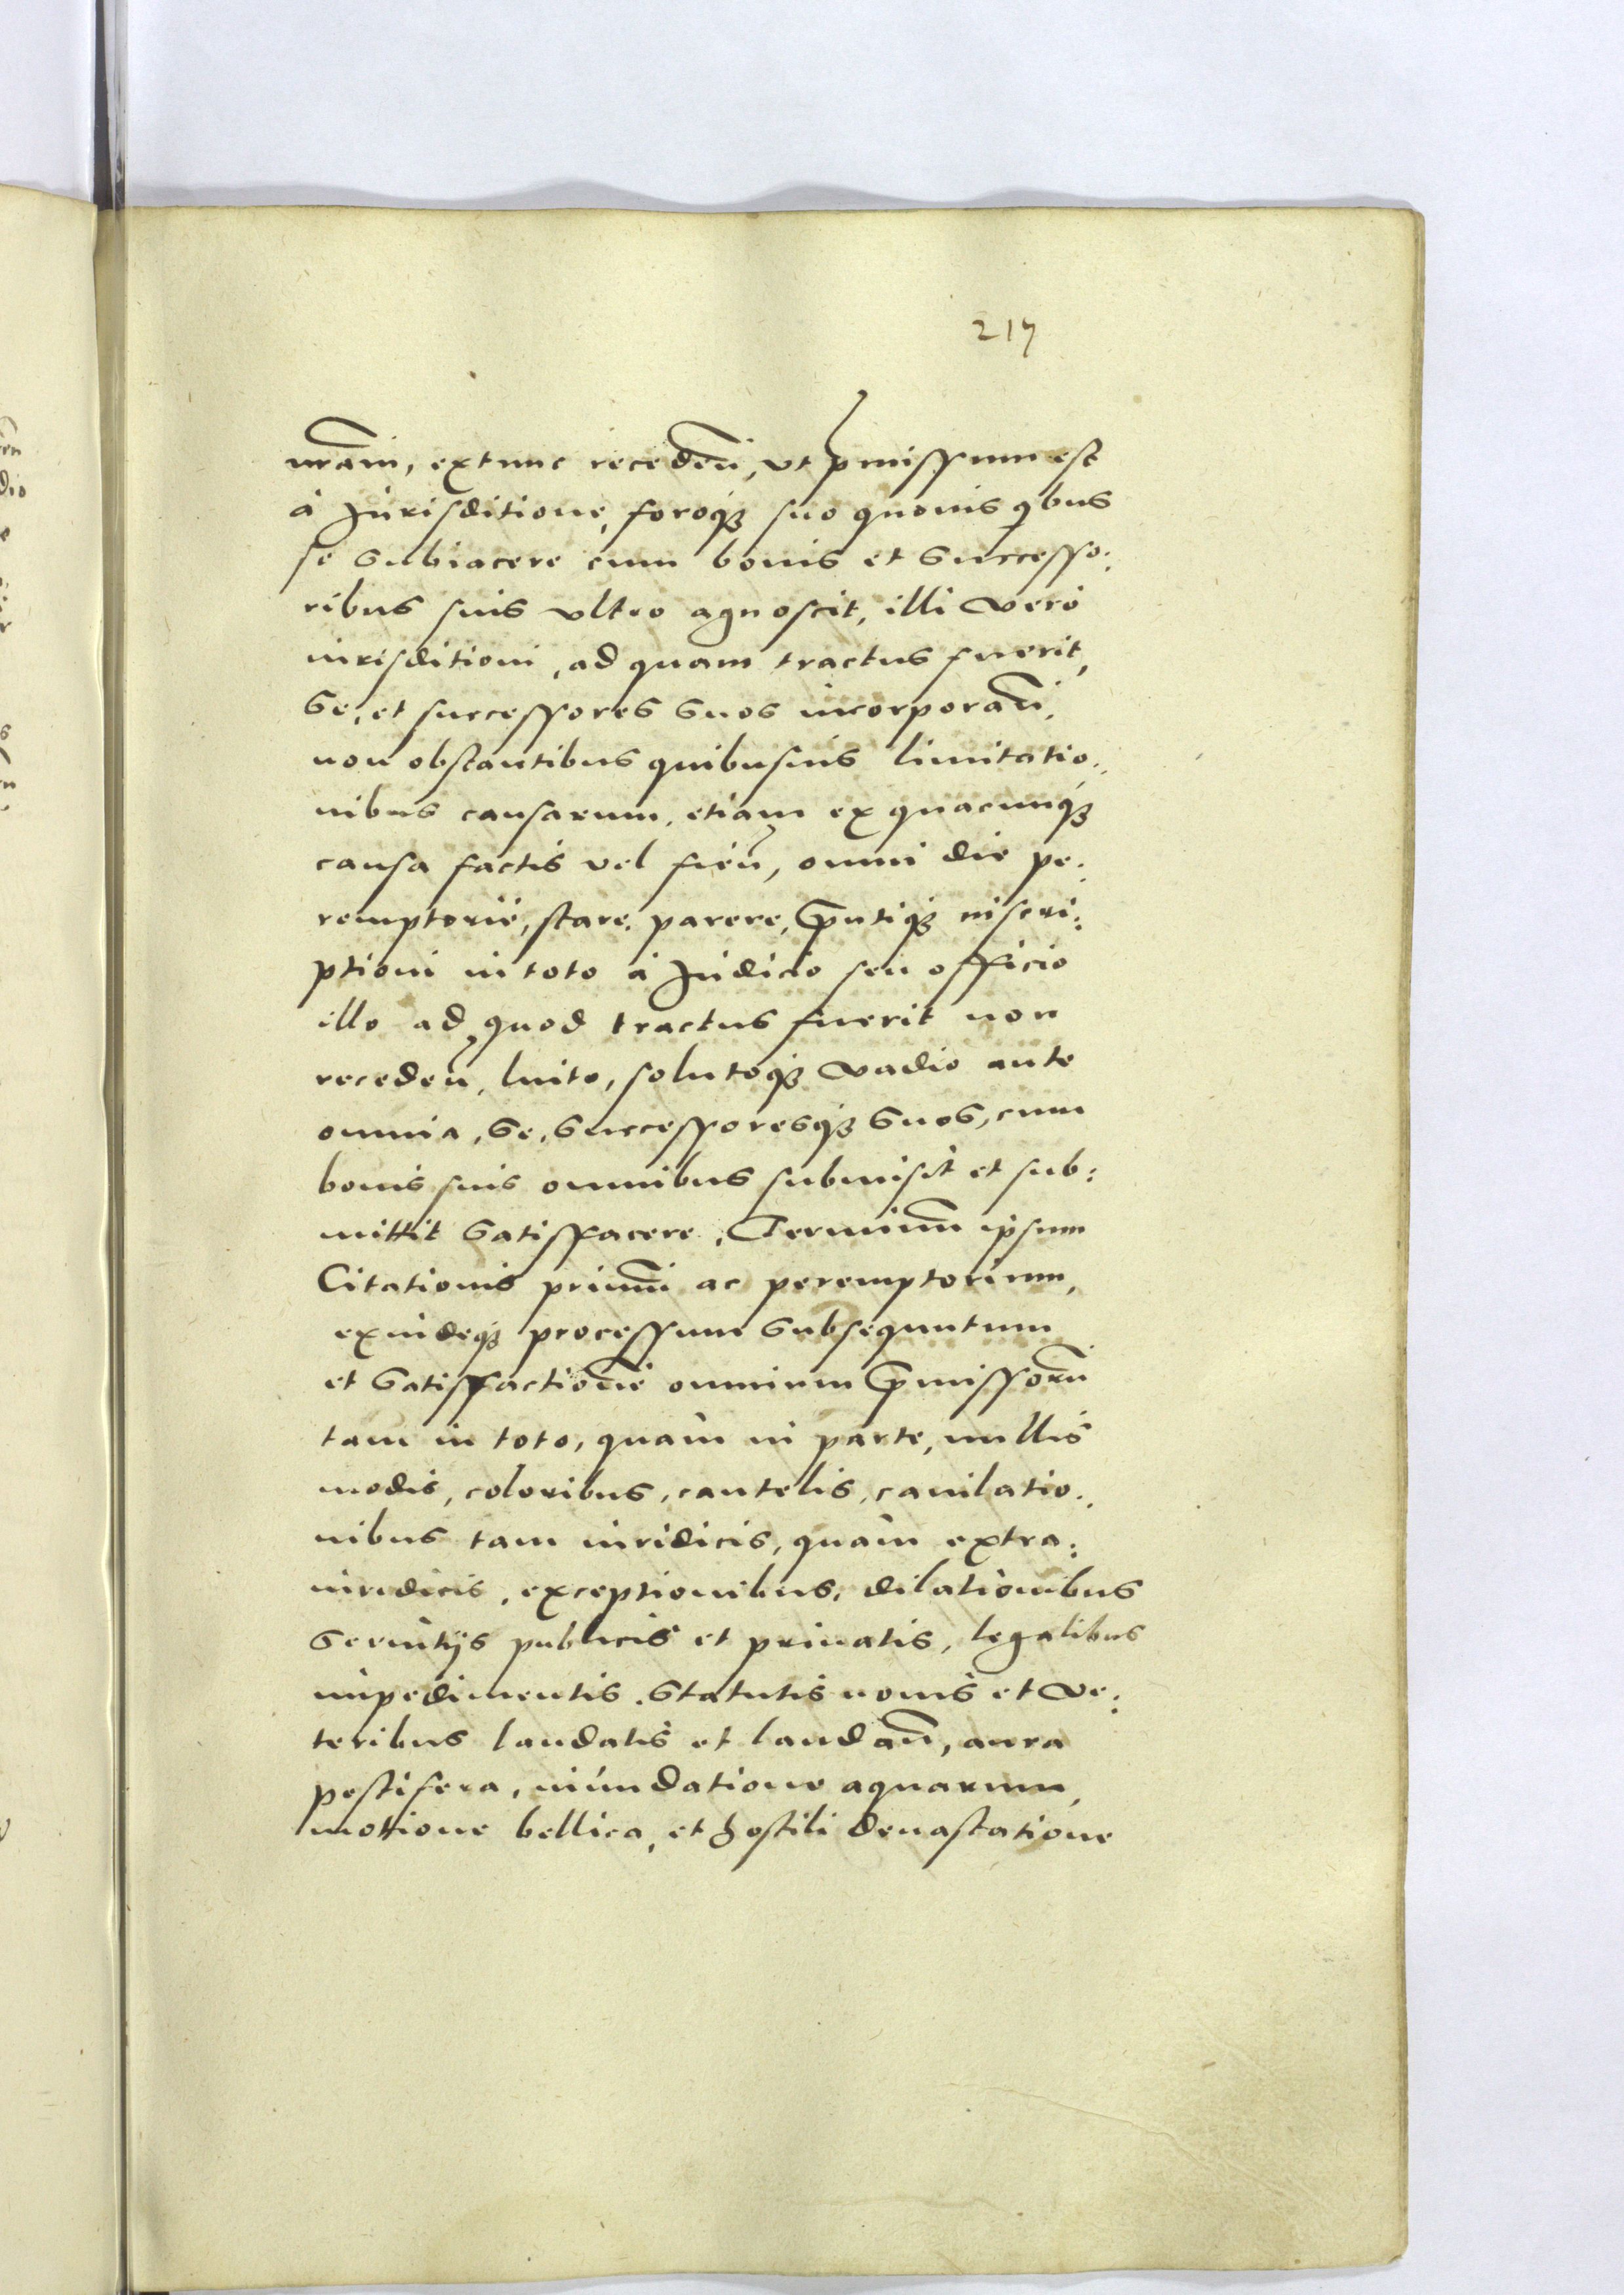 217
nram, extunc receden̄, vt p̄missum est
à Jurisditione, foroq́ꝫ suo quouis q̄bus
se subiacere cum bonis et successo:
ribus suis vltro agnoscit, illi verò
iurisditioni, ad quam tractus fuerit,
se, et successores suos incorporan̄,
non obstantibus quibusuis limitatio:
nibus causarum, etiam ex quacunq́ꝫ
causa factis vel fien̄, omni die pe:
remptoriè, stare, parere, p̄ntiq́ꝫ inscri:
ptioni in toto à Judicio seu officio
illo ad quod tractus fuerit non
receden̄, luito, solutoq́ꝫ vadio ante
omnia, se, successoresq́ꝫ suos, cum
bonis suis omnibus submisit et sub:
mittit satisfacere. Terminum̄ ipsum
Citationis primum̄ ac peremptorium,
exindeq́ꝫ processum subsequutum
et satisfactionē omnium p̄missorū
tam in toto, quàm in parte, nullis
modis, coloribus, cautelis, cauilatio:
nibus tam iuridicis, quàm extra:
iuridicis, exceptionibus, dilationibus
seruitijs publicis et priuatis, legalibus
impedimentis, statutis nouis et ve:
teribus laudatis et laudan̄, aura
pestifera, inundatione aquarum,
mottione bellica, et hostili deuastatione